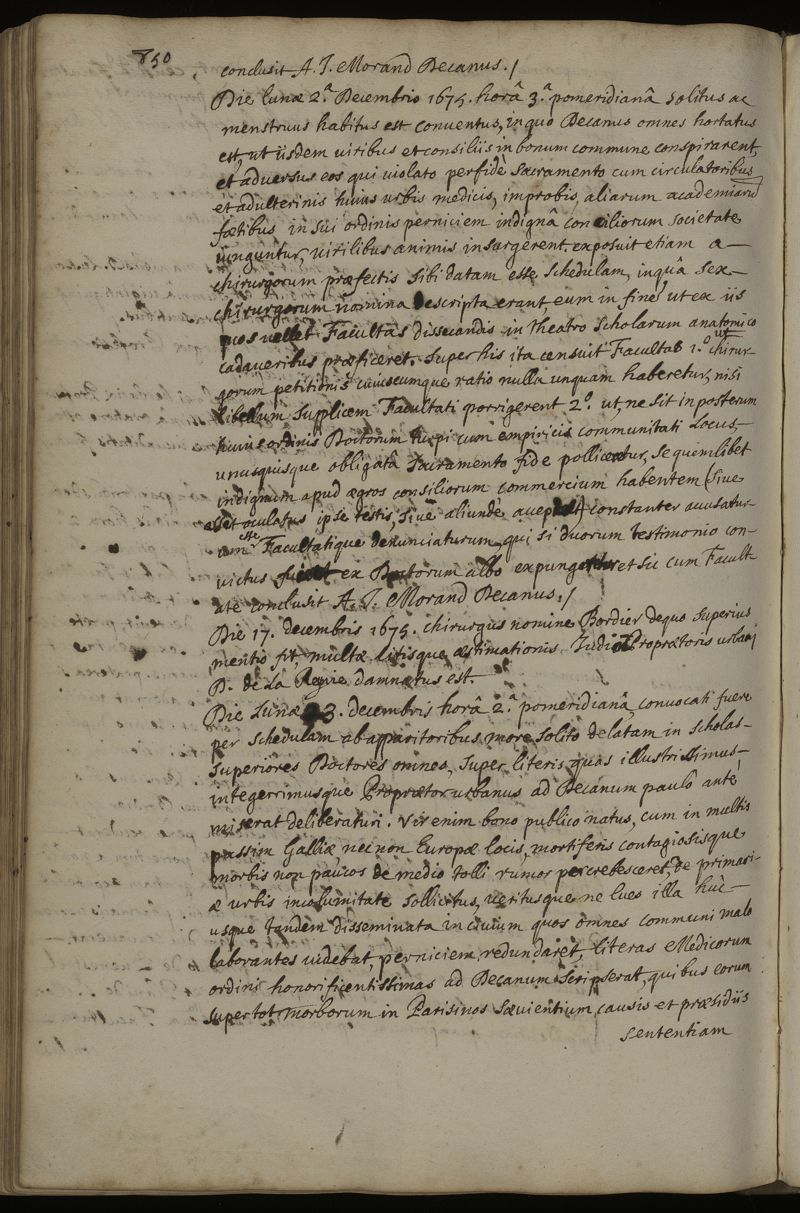 850
conclusit A. J. Morand Decanus./
Die lunæ 2.ª Decembris 1675. horâ 3.ª pomeridianâ solitus ac
menstruus habitus est conventus, in quo Decanus omnes hortatus
est, ut iisdem viribus et consiliis in bonum commune conspirarent,
et adversus eos qui violato perfidè sacramento cum circulatoribus
et adulterinis huius urbis medicis, improbis, aliarum academiarū
fœtibus in sui ordinis perniciem indignâ consiliorum societate
iunguntur, virilibus animis insurgerent. exposuit etiam a
chirurgorum præfectis sibi datam esse schedulam, in quâ sex
chirurgorum nomina descripta erant, eum in finem ut ex iis
quos vellet Facultas dissecandis in theatro scholarum anatomico
cadaveribus præficeret. super his ita censuit Facultas 1.º ut chirur-
gorum petitionis cuiuscumque ratio nulla unquam haberetur, nisi
libellum supplicem Facultati porrigerent 2.º ut, ne sit in posterum
huic ordinis Doctorum turpi cum empiricis communitati Locus,
unusquisque obligatâ sacramento fide polliceatur, se quemlibet
indignum apud ægros consiliorum commercium habentem (sive
sit oculatus ipse testis, sive aliundè constanter accusatur-
um esse Facultatique denunciaturum, qui si duorum testimonio con-
victus ex Doctorum albo expungetur et sic cum Facult
ate conclusit A. J. Morand Decanus./
Die 17. decembris 1675. chirurgus nomine Bordier de quo superius
mentio fit, multæ litisque æstimationis Iudicio Proprætoris urbani
D. de La Reynie damnatus est.
Die Lunæ 23. decembris horâ 2.ª pomeridianâ convocati fuere
per schedulam ab apparitoribus more solito delatam in scholas
superiores Doctores omnes, super literis quas illustrissimus
integerrimusque Proprætor urbanus ad Decanum paulo antè
miserat deliberaturi. Vir enim bono publico natus, cum in multis
passim Galliæ nec non Europæ locis, mortiferis contagiosisque
morbis non paucos de medio tolli rumor percrebesceret, de primari-
æ urbis incolumitate sollicitus, veritusque ne lues illa hûc
usque tandem disseminata in civium quos omnes communi malo
laborantes videbat, perniciem redundaret, literas Medicorum
ordini honorificentissimas ad Decanum scripserat, quibus eorum
super tot morborum in Parisinos sævientium causis et præsidiis
sententiam